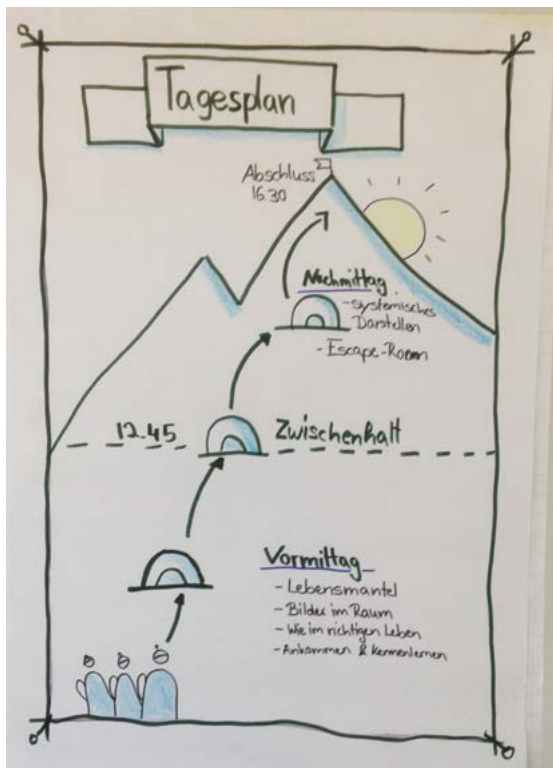 Tagesplan
Abschluss
16.30
Nachmittag
- systemisches
Darstellen
- Escape-Room
12.45
Zwischenhalt
Vormittag
- Lebensmantel
- Bilder im Raum
- Wie im richtigen Leben
- Ankommen & Kennenlernen